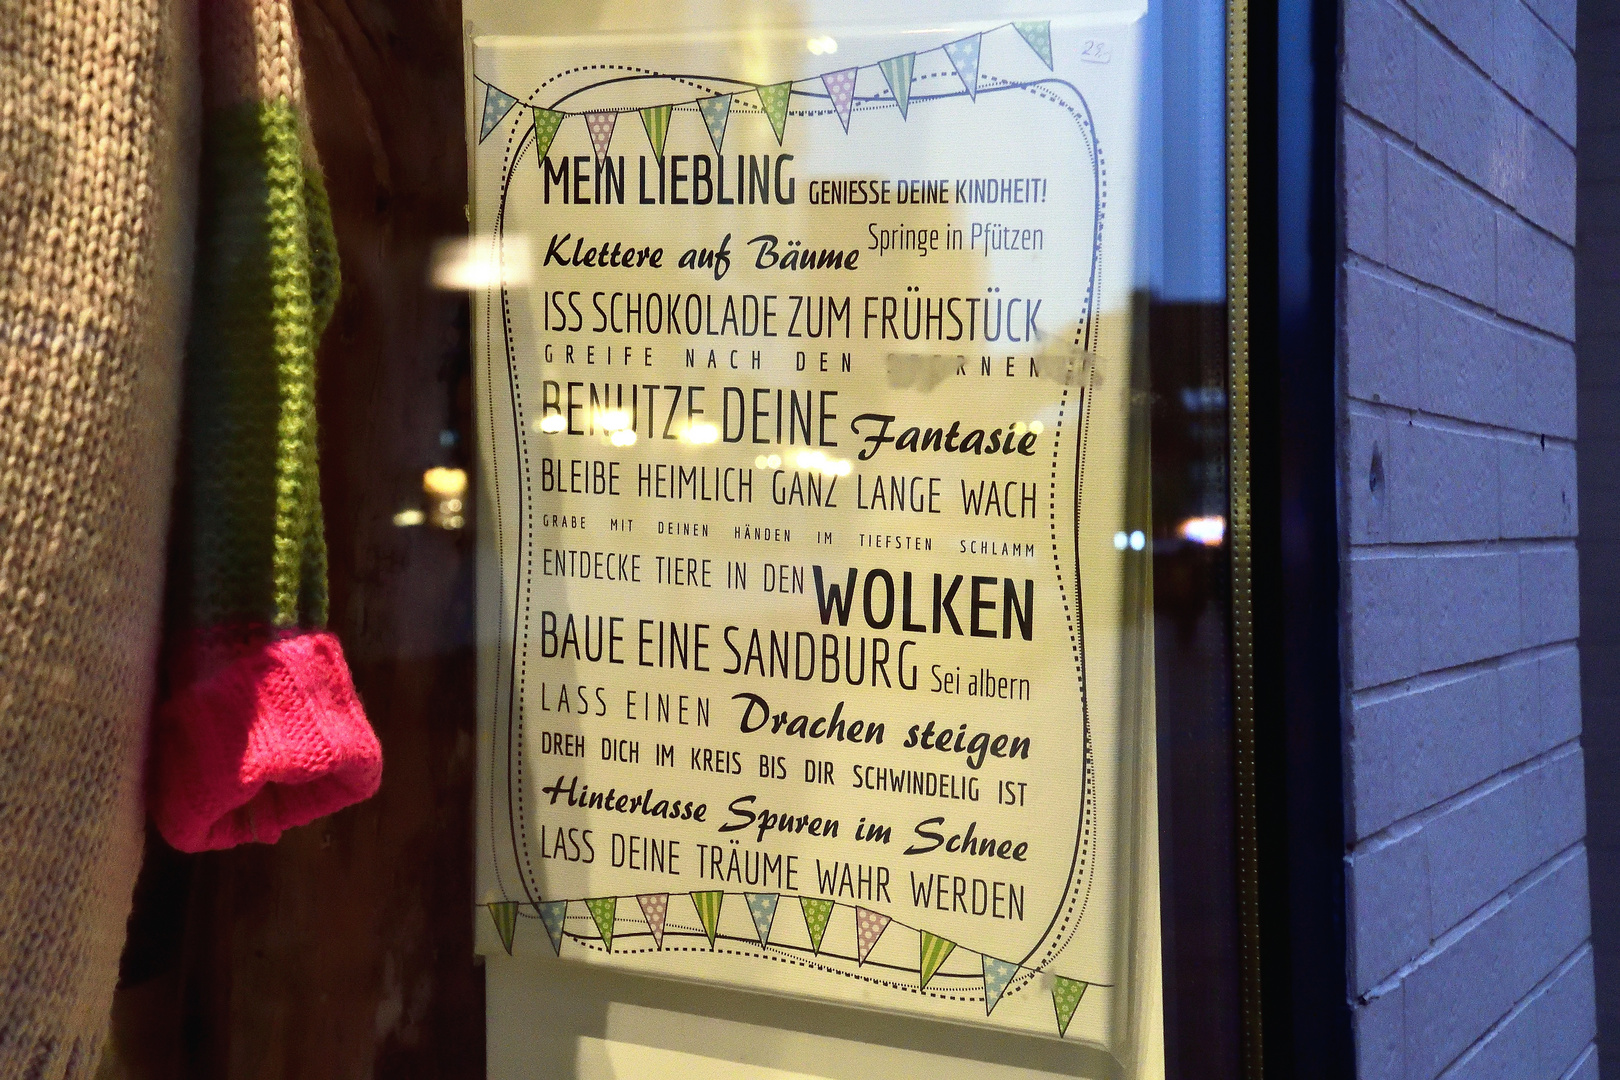 MEIN LIEBLING GENIESSE DEINE KINDHEIT!
Klettere auf Bäume Springe in Pfützen
ISS SCHOKOLADE ZUM FRÜHSTÜCK
GREIFE NACH DEN
BENUTZE DEINE Fantasie
BLEIBE HEIMLICH GANZ LANGE WACH
GRABE MIT DEINEN HÄNDEN IM TIEFSTEN SCHLAMM
ENTDECKE TIERE IN DEN WOLKEN
BAUE EINE SANDBURG Sei albern
LASS EINEN Drachen steigen
DREH DICH IM KREIS BIS DIR SCHWINDELIG IST
Hinterlasse Spuren im Schnee
LASS DEINE TRÄUME WAHR WERDEN